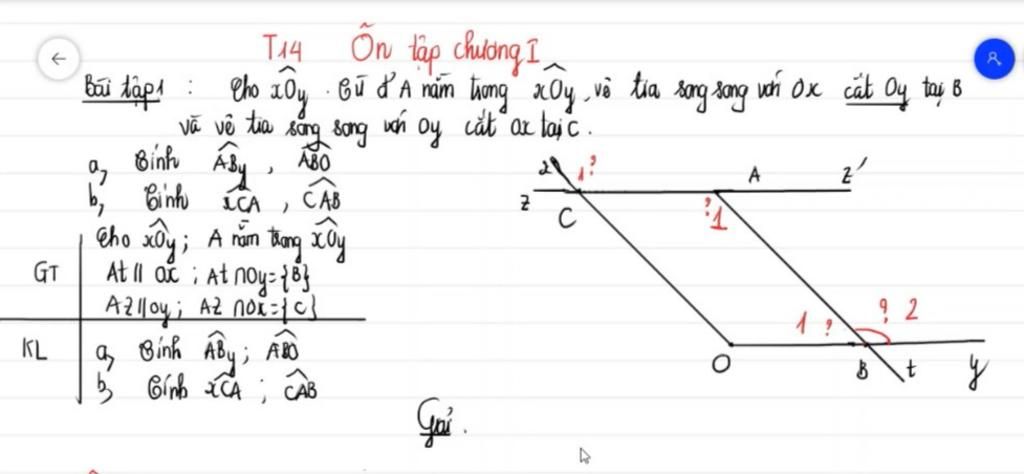 T14 Ôn tập chương I
Bài tập 1 : Cho xOy . Từ đ' A nằm trong xOy, vẽ tia song song với Ox cắt Oy tại B
và vẽ tia song song với Oy cắt Ox tại C.
a, Tính ABy , ABO
b, Tính xCA , CAB
Cho xOy; A nằm trong xOy
GT At // Ox ; At ∩ Oy = {B}
Az // Oy; Az ∩ Ox = {C}
KL a, Tính ABy ; ABO
b, Tính xCA ; CAB
x 1 ? A z'
z C ? 1
1 ? ? 2
O B t y
Giải.